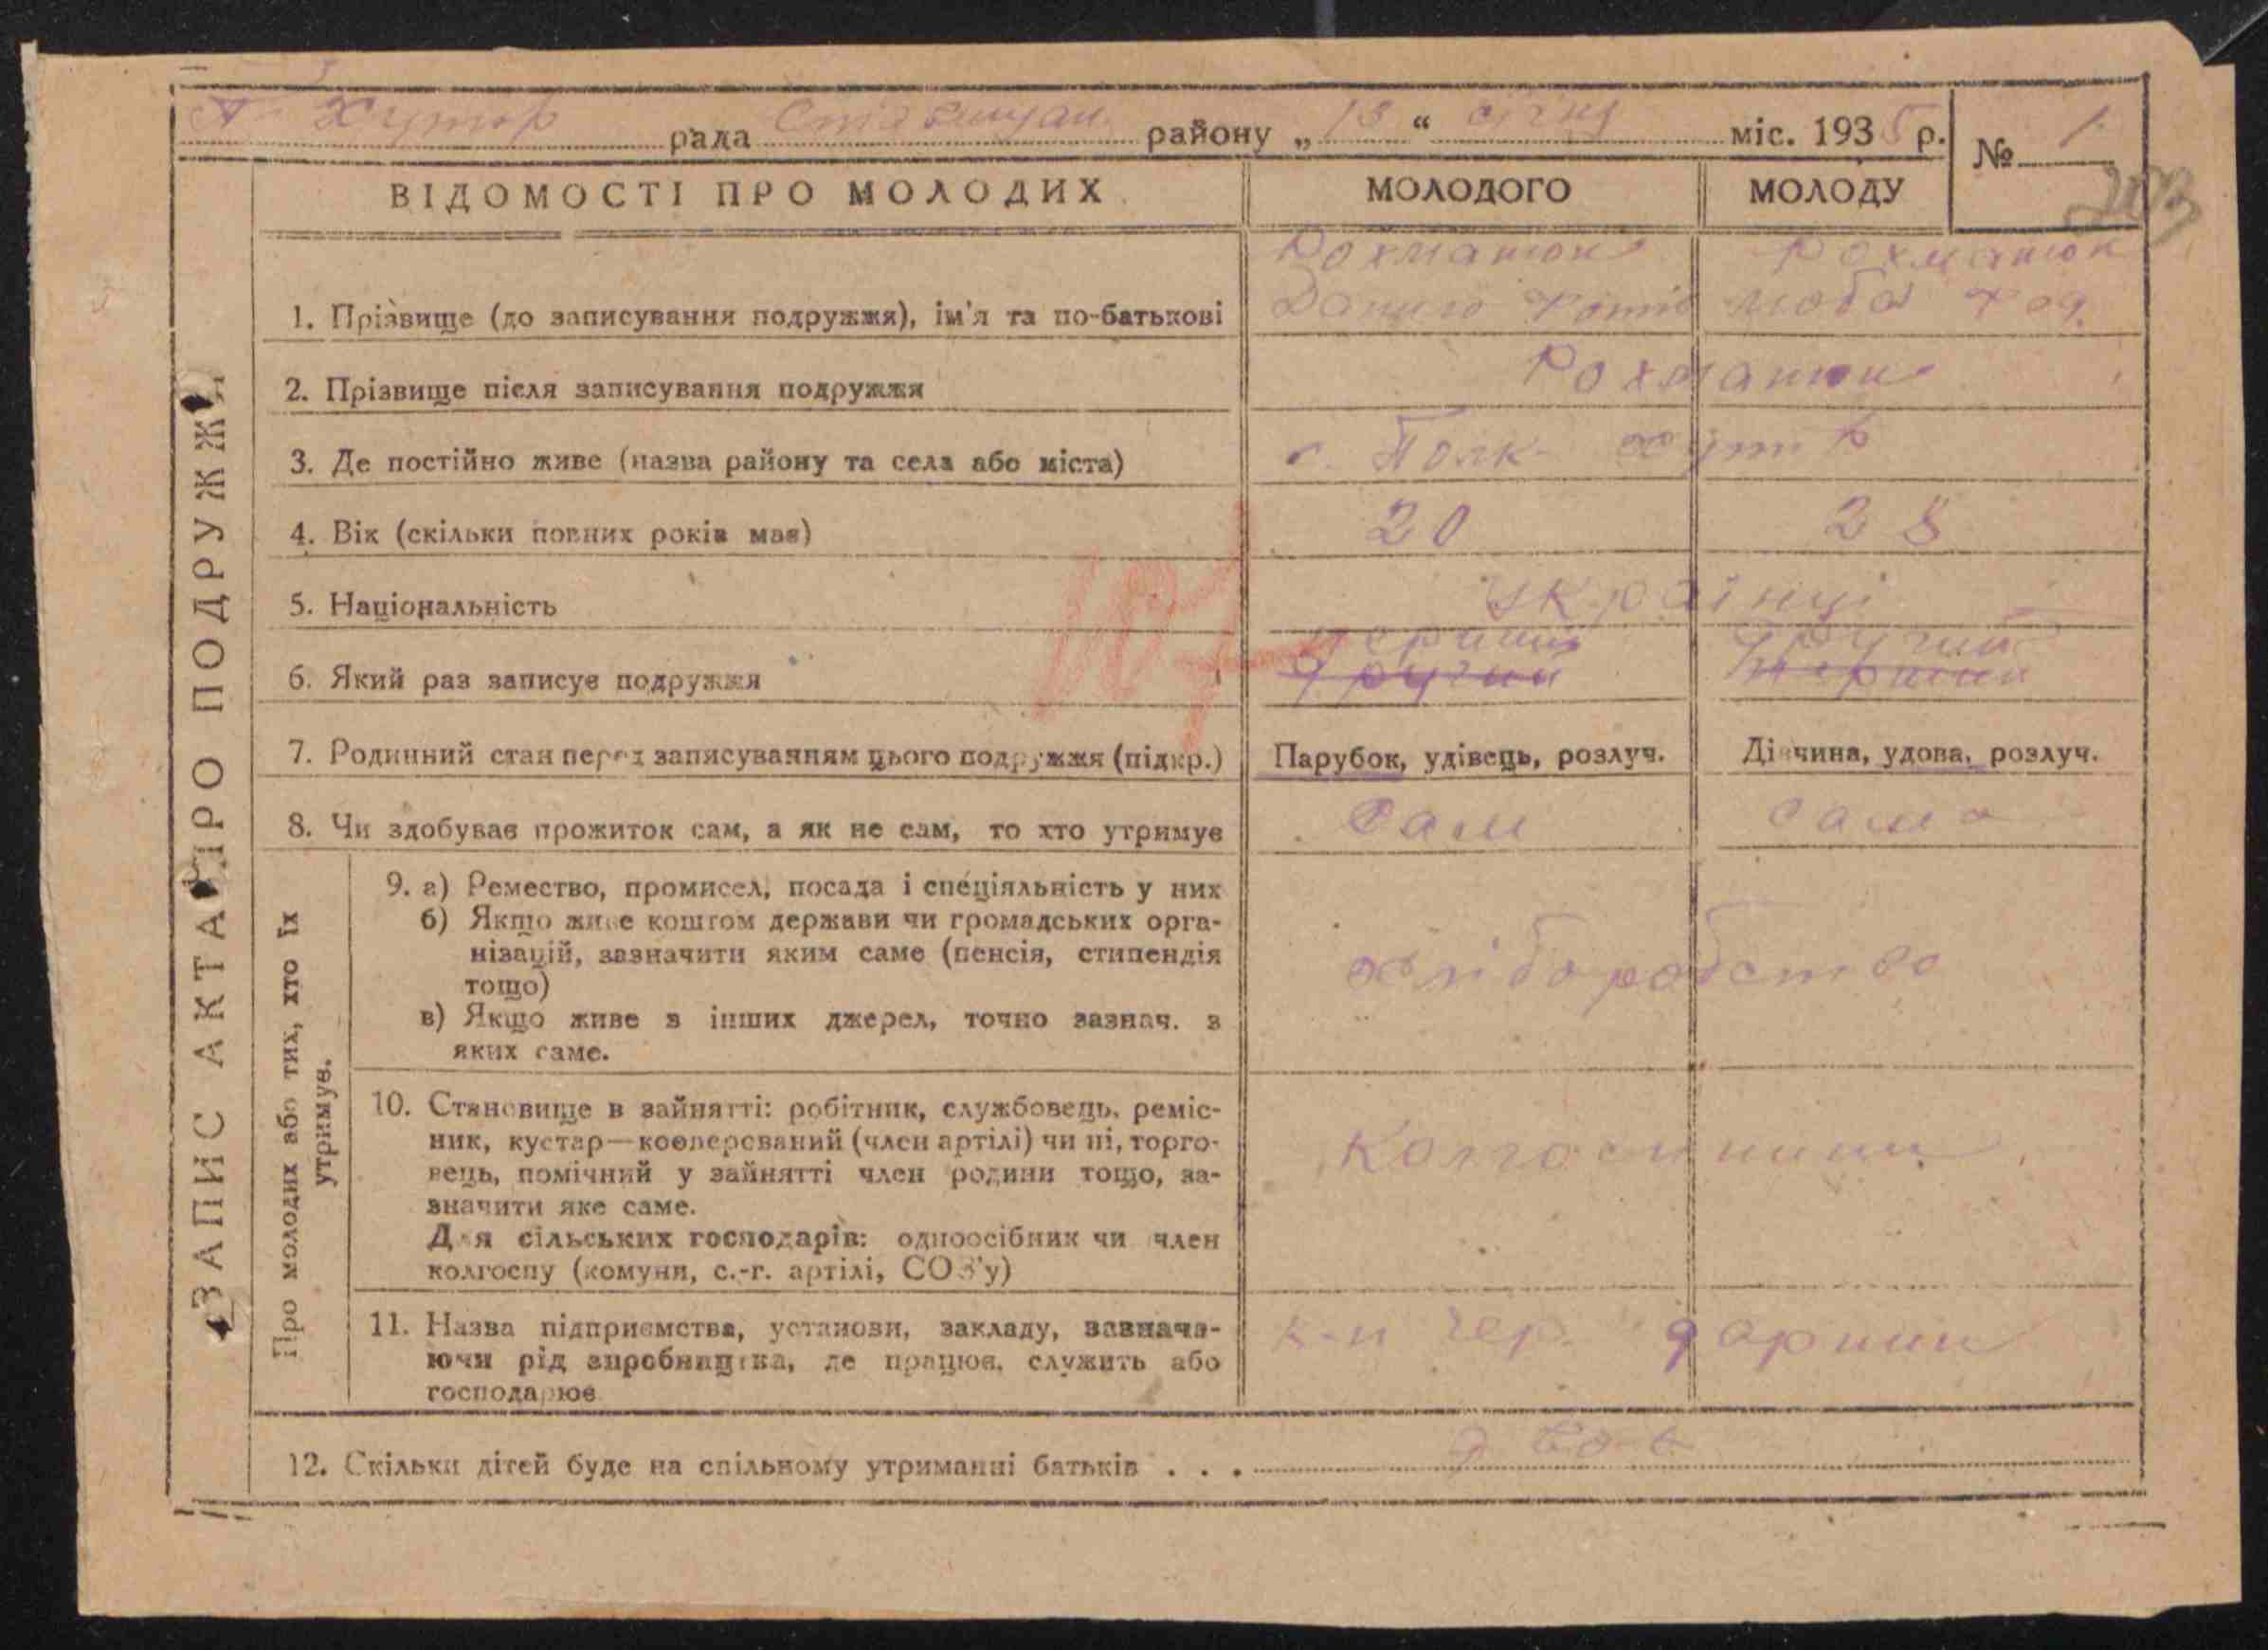 П Хутор рада Ставищан. району „ 13 “ січня міс. 1935 р. № 1
203
ВІДОМОСТІ ПРО МОЛОДИХ МОЛОДОГО МОЛОДУ
Рохманюк Рохманюк
1. Прізвище (до записування подружжя), ім'я та по-батькові Данило Фотів Люба Фод.
2. Прізвище після записування подружжя Рохманюк
3. Де постійно живе (назва району та села або міста) с. Полк- хутір
4. Вік (скільки повних років має) 20 28
5. Національність українці
перший другий
6. Який раз записує подружжя другий перший
7. Родинний стан перед записуванням цього подружжя (підкр.) Парубок, удівець, розлуч. Дівчина, удова, розлуч.
8. Чи здобуває прожиток сам, а як не сам, то хто утримує сам сама
9. а) Ремество, промисел, посада і спеціяльність у них
б) Якщо живе коштом держави чи громадських орга-
нізацій, зазначити яким саме (пенсія, стипендія
тощо)
хліборобство
в) Якщо живе з інших джерел, точно зазнач. з
яких саме.
10. Становище в зайнятті: робітник, службовець, реміс-
ник, кустар—кооперований (член артілі) чи ні, торго-
вець, помічний у зайнятті член родини тощо, за-
значити яке саме.
Колгоспники
Для сільських господарів: одноосібник чи член
колгоспу (комуни, с.-г. артілі, СОЗ'у)
11. Назва підприємства, установи, закладу, зазнача-
ючи рід виробництва, де працює, служить або
господарює
к-п чер.
12. Скільки дітей буде на спільному утриманні батьків . . .
ЗАПИС АКТА ПРО ПОДРУЖЖЯ
Про молодих або тих, хто їх
утримує.